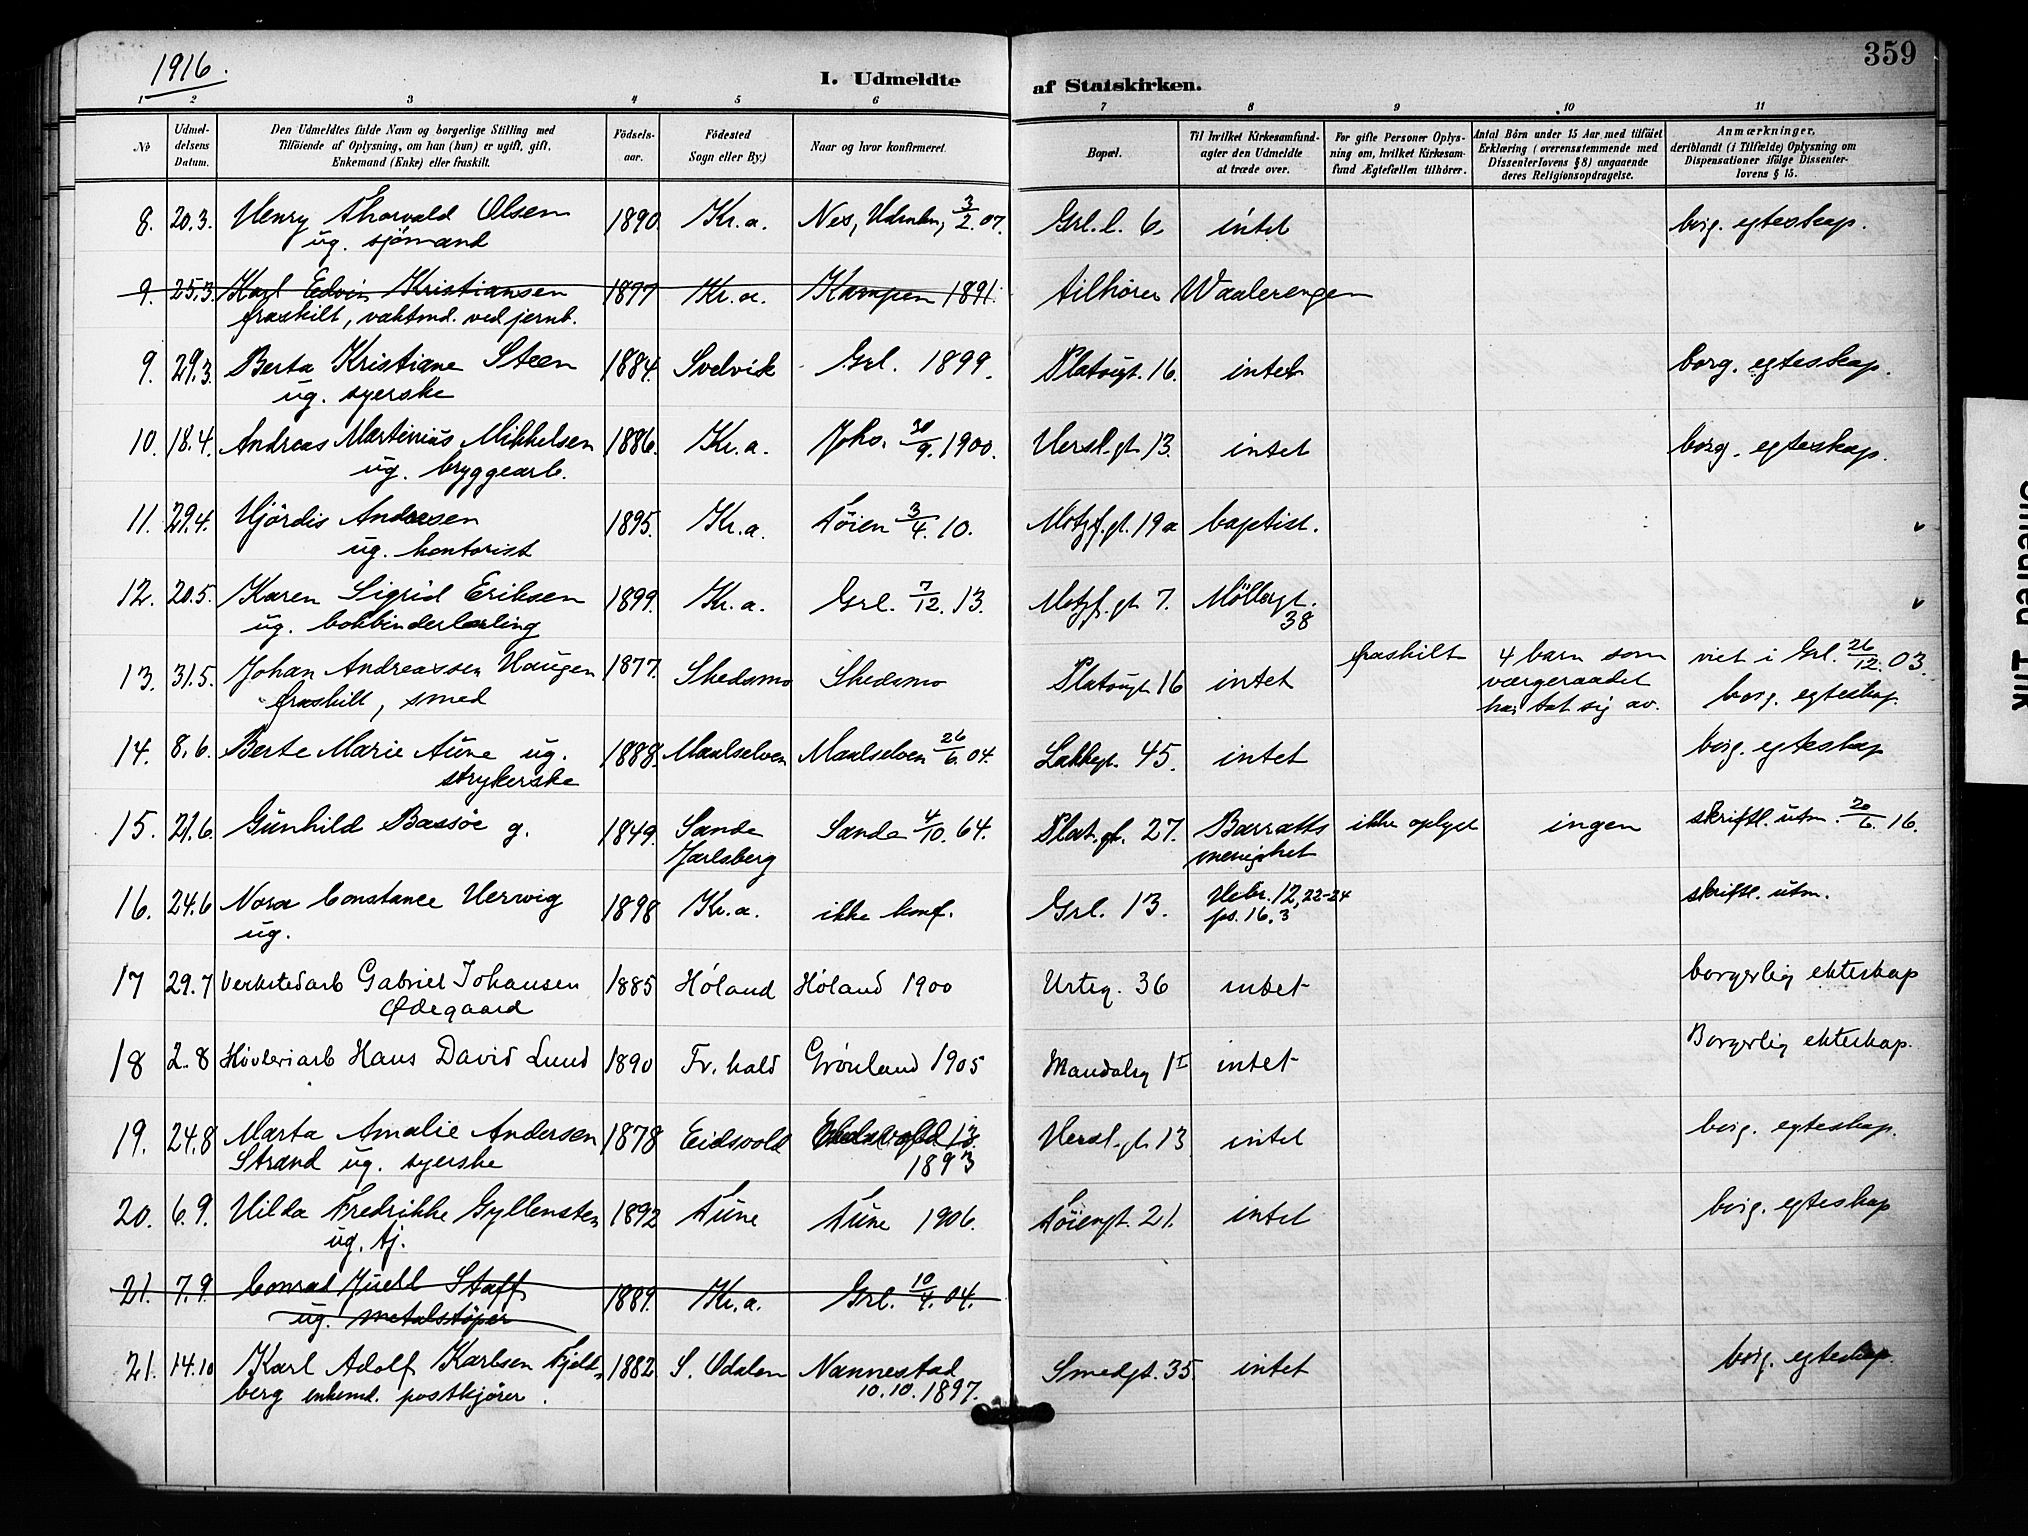 1916.
I. Udmeldte af Statskirken.
359
1 2 3 4 5 6 7 8 9 10 11
No
Udmeldelsens Datum.
Den Udmeldtes fulde Navn og borgerlige Stilling med
Tilføiende af Oplysning, om han (hun) er ugift, gift,
Enkemand (Enke) eller fraskilt.
Födselsaar.
Födested
Sogn eller By.)
Naar og hvor konfirmeret.
Bopæl.
Til hvilket Kirkesamfund-
agter den Udmeldte
at træde over.
For gifte Personer Oplys-
ning om, hvilket Kirkesam-
fund Ægtefællen tilhörer.
Antal Börn under 15 Aar med tilföiet
Erklæring (overensstemmende med
Dissenterlovens § 8) angaaende
deres Religionsopdragelse.
Anmærkninger,
deriblandt (i Tilfælde) Oplysning om
Dispensationer ifölge Dissenter-
lovens § 15.
8. 20.3. Henry Thorvald Olsen 1890 Kr.a. Nes, 3/2. 07. Grl.l. 6 intet borg. egteskap.
ug. sjömand
9. 25.3. Karl Edvin Kristiansen 1877 Kr.a. Kampen 1891. tilhører Waalerengen
fraskilt, vaktmd. ved jernb.
9. 29.3. Berta Kristiane Steen 1884. Svelvik Grl. 1899. Platougt. 16. intet borg. egteskap.
ug. syerske
10. 18.4. Andreas Martinius Mikkelsen 1886. Kr.a. Joh. 30/9. 1900. Hersl.gt. 13. intet borg. egteskap.
ug. bryggearb.
11. 29.4. Hjördis Andersen 1895. Kr.a. Töien 3/4. 10. Motzf.gt. 19a baptist.
ug. kontorist
12. 20.5. Karen Sigrid Eriksen 1899. Kr.a. Grl. 7/12. 13. Motzf.gt. 7. Möllergt. 38
ug. bokbinderlærling
13. 31.5. Johan Andreassen Haugen 1877. Skedsmo Skedsmo Platougt 16 intet fraskilt 4 barn som viet i Grl. 26/12. 03.
fraskilt, smed værgeraadet borg. egteskap.
har tat sig av.
14. 8.6. Berte Marie Aune ug. 1888. Maalselven Maalselven 26/6. 04. Lakkegt. 45. intet borg. egteskap
strykerske
15. 21.6. Gunhild Bassöe g. 1849. Sande Sande 4/10. 64. Plat.gt. 27. Barratts ikke oplyst ingen skriftl. utm. 20/6. 16.
Jarlsberg menighet
16. 24.6 Nora Constance Herwig 1898 Kr.a. ikke konf. Grl. 13. Hebr. 12, 22-24 skriftl. utm.
ug. ps. 16.3
17 29.7 Verkstedarb Gabriel Johansen 1885 Höland Höland 1900 Urteg. 36 intet borgerlig ekteskap
Ødegaard
18 2.8 Høvleriarb Hans David Lund 1890 Fr.hald Grönland 1905 Mandalsg 1 I intet Borgerlig ekteskap.
19. 24.8 Marta Amalie Andersen 1878 Eidsvold Eidsvold Hersl.gt. 13 intet borg. egteskap.
Strand ug. syerske 1893
20. 6.9. Hilda Fredrikke Gyllensten 1892 Tune Tune 1906. Töiengt. 21. intet borg. egteskap
ug. tj.
21. 7.9. Conrad Juell Staff 1889. Kr.a. Grl. 10/4. 04.
ug. metalstöper
21. 14.10 Karl Adolf Karlsen Fjeld- 1882 S. Odalen Nannestad Smedgt. 35. intet borg. egteskap.
berg enkemd. postkjörer. 10.10.1897.